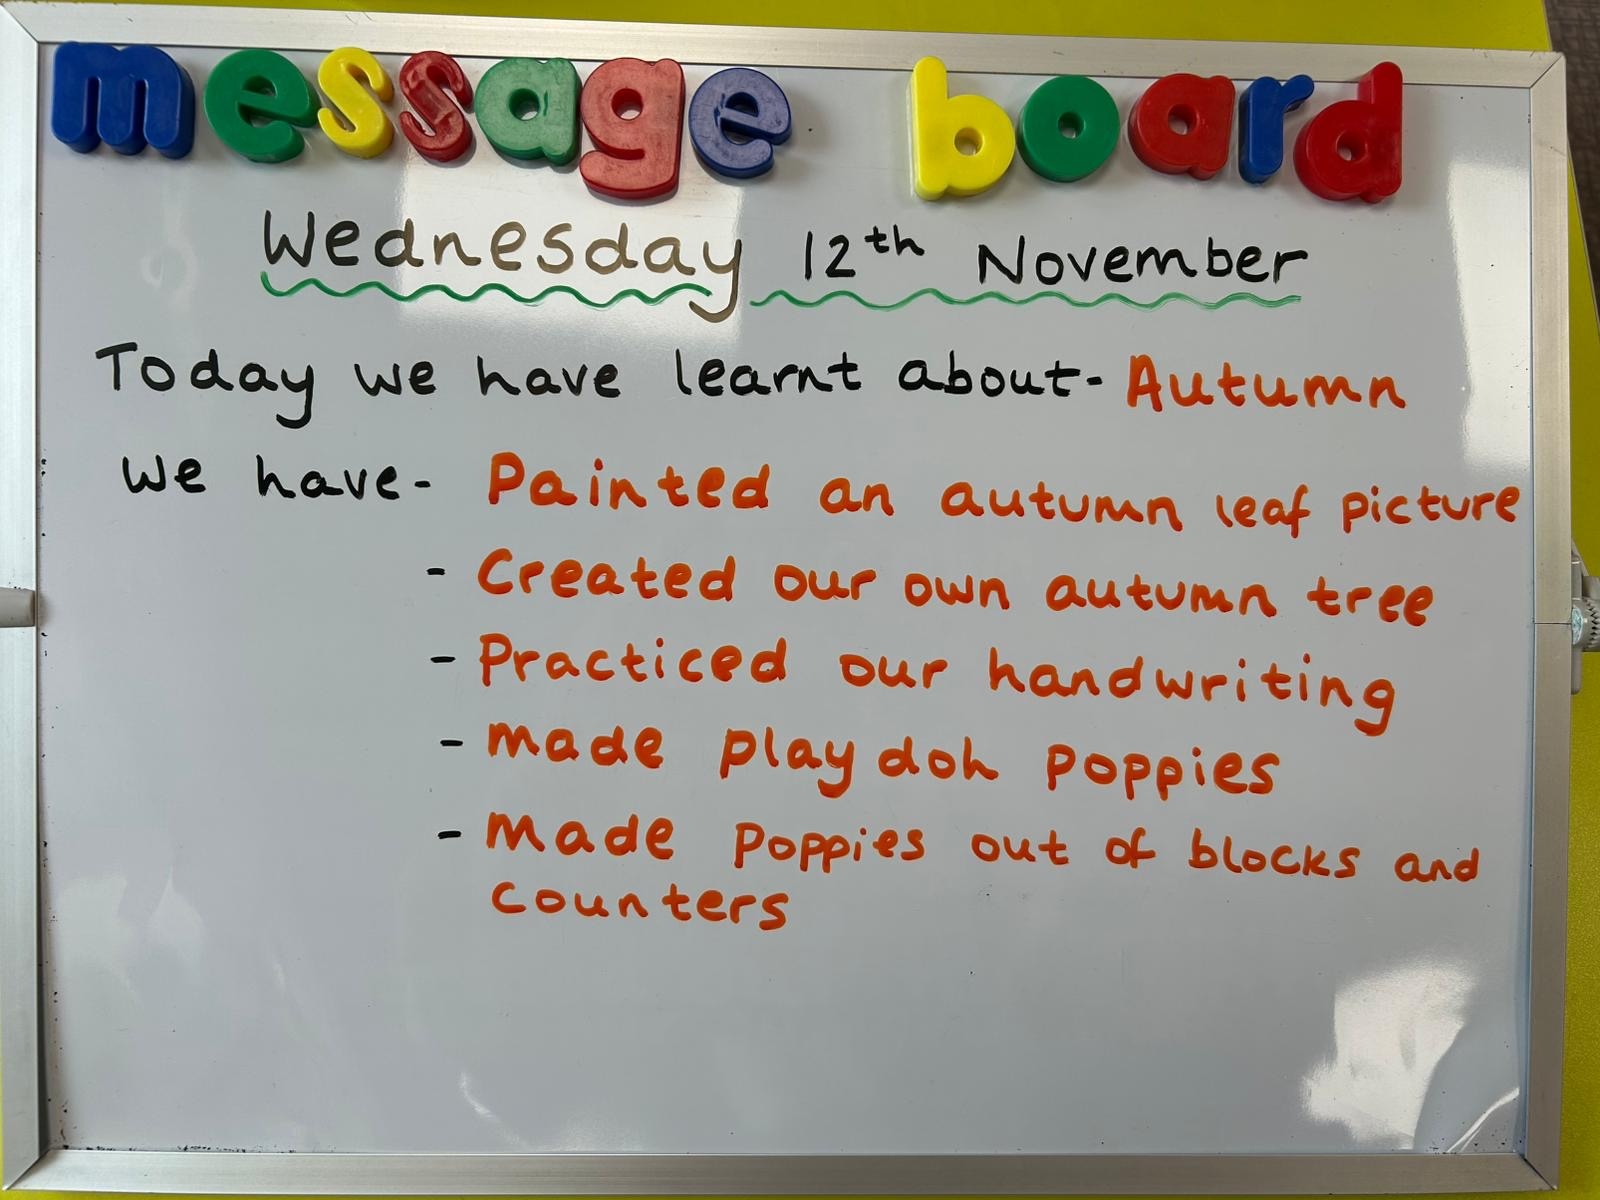 message board
Wednesday 12th November
Today we have learnt about- Autumn
We have- Painted an autumn leaf picture
- Created our own autumn tree
- Practiced our handwriting
- made playdoh poppies
- made poppies out of blocks and
counters